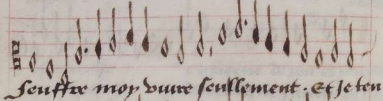 Seuffre moy viure seullement . Et Je ten